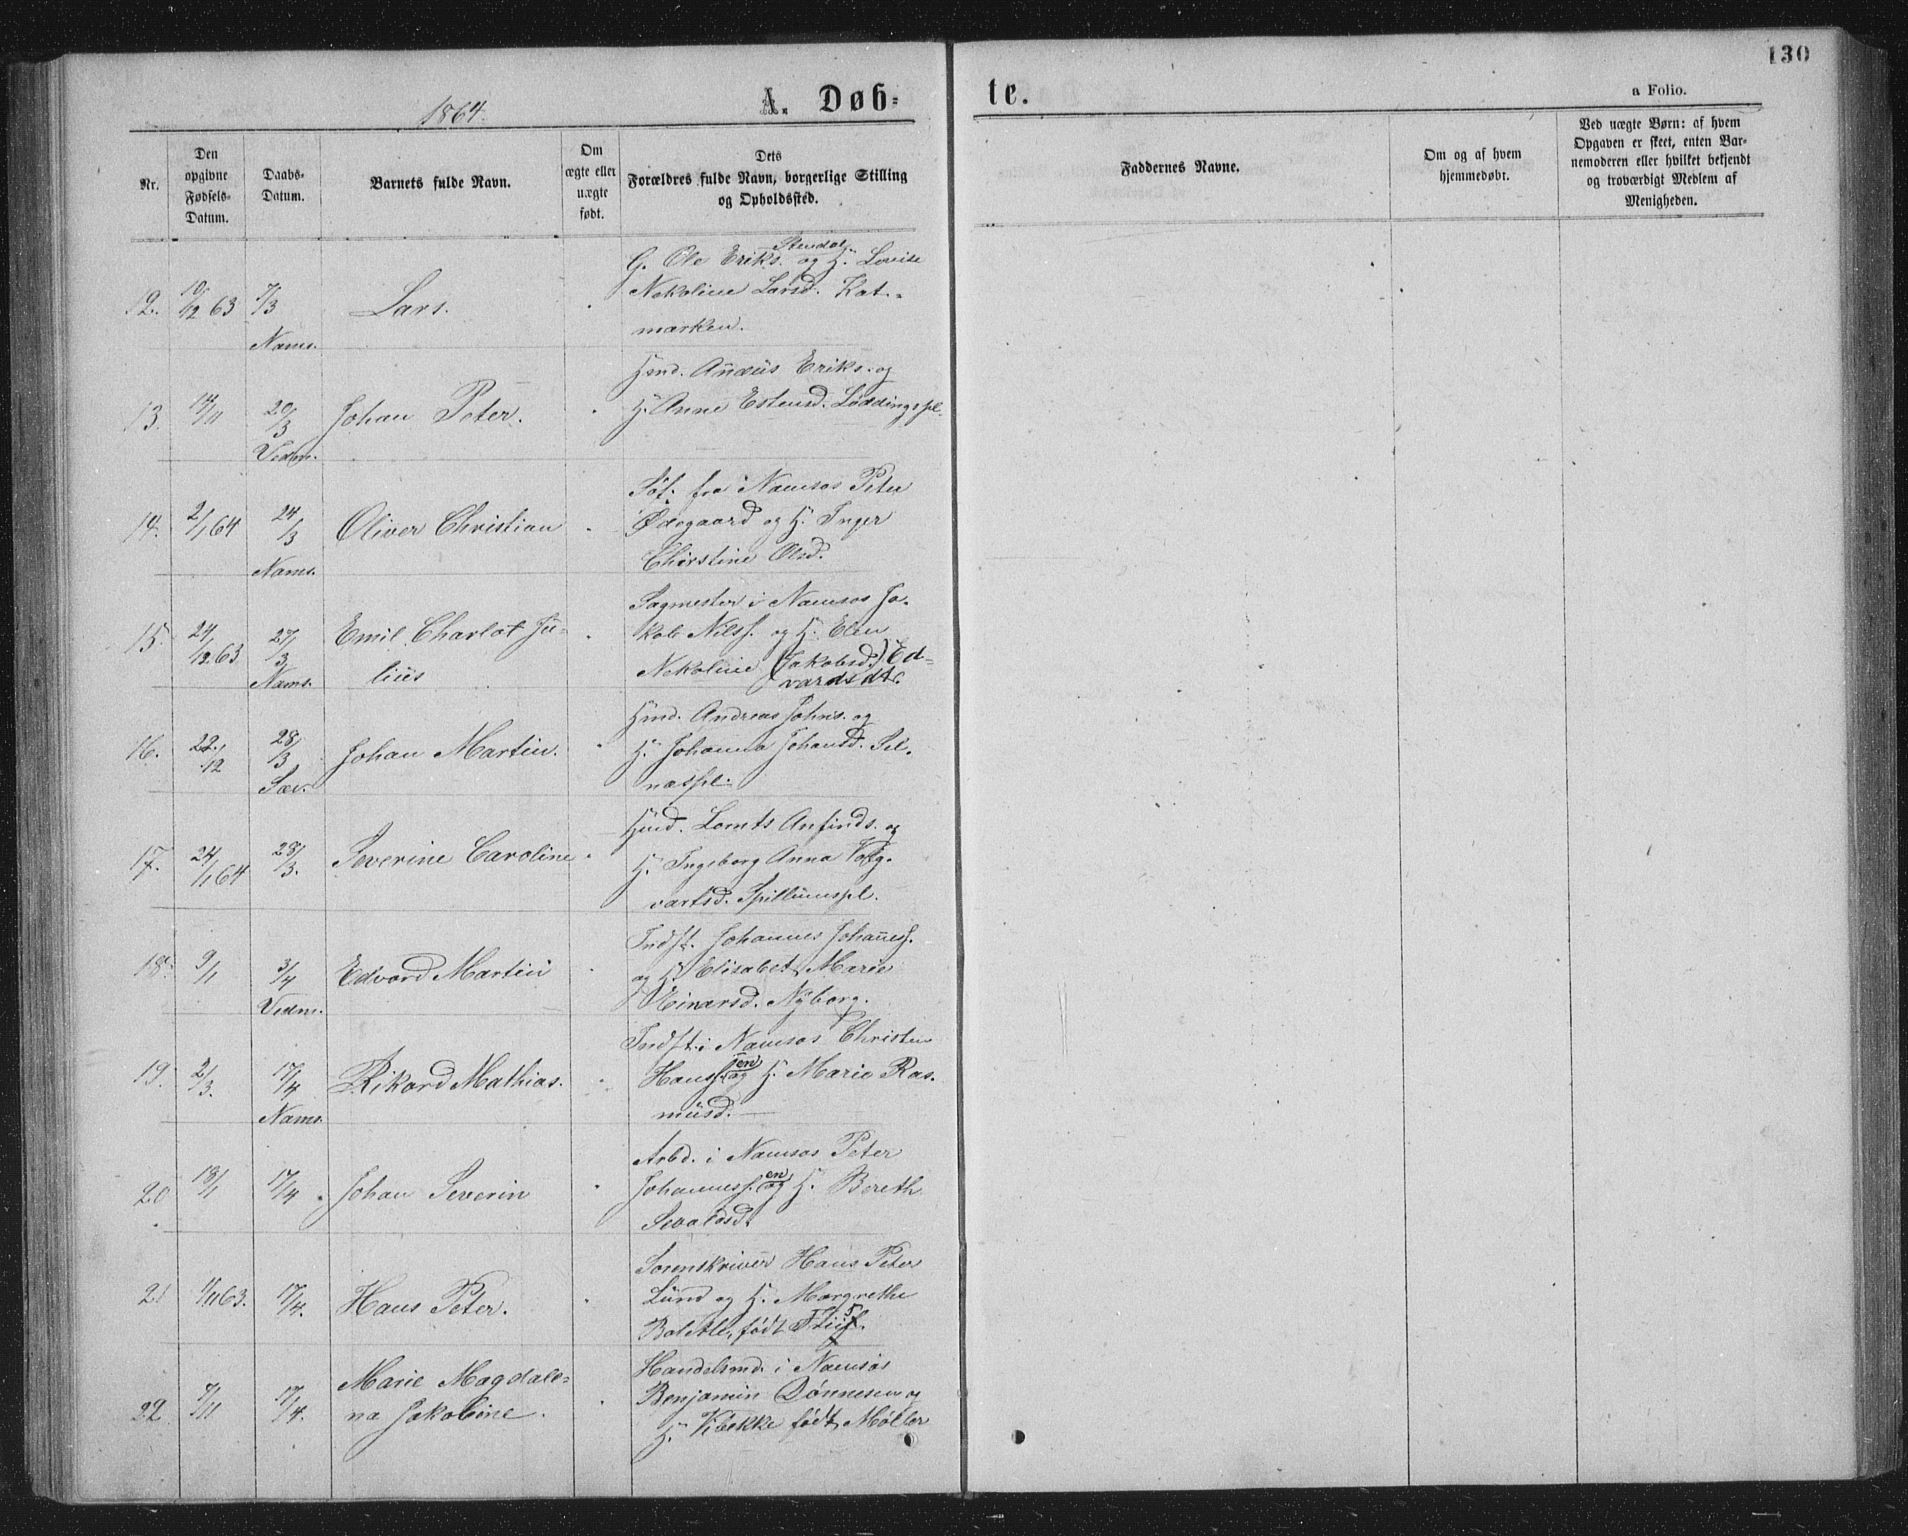 130
1864.
A. Døb-
te.
a Folio.
Nr.
Den
opgivne
Fødsels-
Datum.
Daabs-
Datum.
Barnets fulde Navn.
Om
ægte eller
uægte
født.
Dets
Forældres fulde Navn, borgerlige Stilling
og Opholdssted.
Faddernes Navne.
Om og af hvem
hjemmedøbt.
Ved uægte Børn: af hvem
Opgaven er skeet, enten Bar-
nemoderen eller hvilket bekjendt
og troværdigt Medlem af
Menigheden.
12. 10/12 63 7/3 Nams. Lars.
G. Ole Eriks. Stendal og H. Lovise
Nekoline Larsd. Kat-
marken.
13. 14/11 20/3 Vedm. Johan Peter.
Hmd. Anders Eriks. og
H. Anne Estensd. Løddingspl.
14. 2/1 64 24/3 Nams. Oliver Christian
fra Namsos Peter
Ødegaard og H. Inger
Christine Olsd.
15. 24/12 63 27/3 Nams. Emil Charlot Ju-
lius
Sagmester i Namsos Ja-
kob Nilss. og H. Elen
Nekoline (Jakobsd.) Ed-
vardsdtr.
16. 22/12 28/3 Sæv. Johan Martin.
Hmd. Andreas Johns. og
H. Johanna Johansd. Sel-
næspl.
17. 24/1 64 28/3. Severine Caroline
Hmd. Lornts Anfinds. og
H. Ingeborg Anna Torg-
vartsd. Spillumspl.
18. 9/1 3/4 Vedm. Edvard Martin
Indst. Johannes Johaness.
og H. Elisabet Marie
Einarsd. Nyborg.
19. 2/3. 17/4 Nams. Rikard Mathias.
Indst. i Namsos Christen
Hanss.en og H. Marie Ras-
musd.
20 18/1 17/4. Johan Severin
Arbd. i Namsos Peter
Johanness.en og H. Bereth
Sevaldsd.
21 11/11 63. 17/4. Hans Peter.
Sorenskriver Hans Peter
Lund og H. Margrethe
født
22. 7/11 17/4. Marie Magdale-
na Jakobine.
Handelsmd. i Namsos
Benjamin Dønnesen og
H. Vibekke født Møller